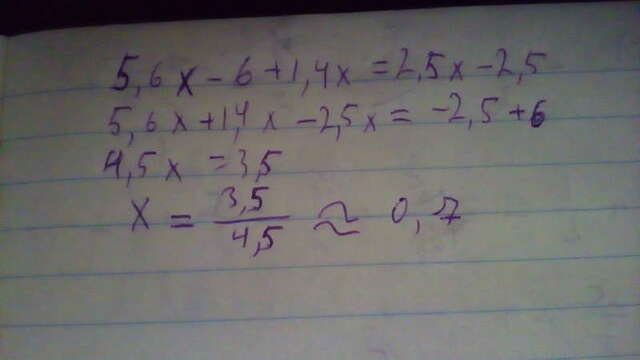 5,6x - 6 + 1,4x = 2,5x - 2,5
5,6x + 1,4x - 2,5x = -2,5 + 6
4,5x = 3,5
x = 3,5/4,5 ≈ 0,7